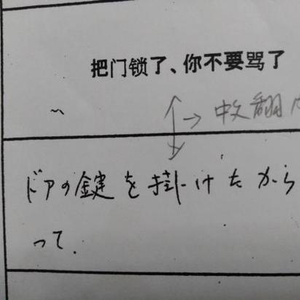 把门锁了、你不要骂了
→中文翻
ドアの鍵を掛けたから
って.